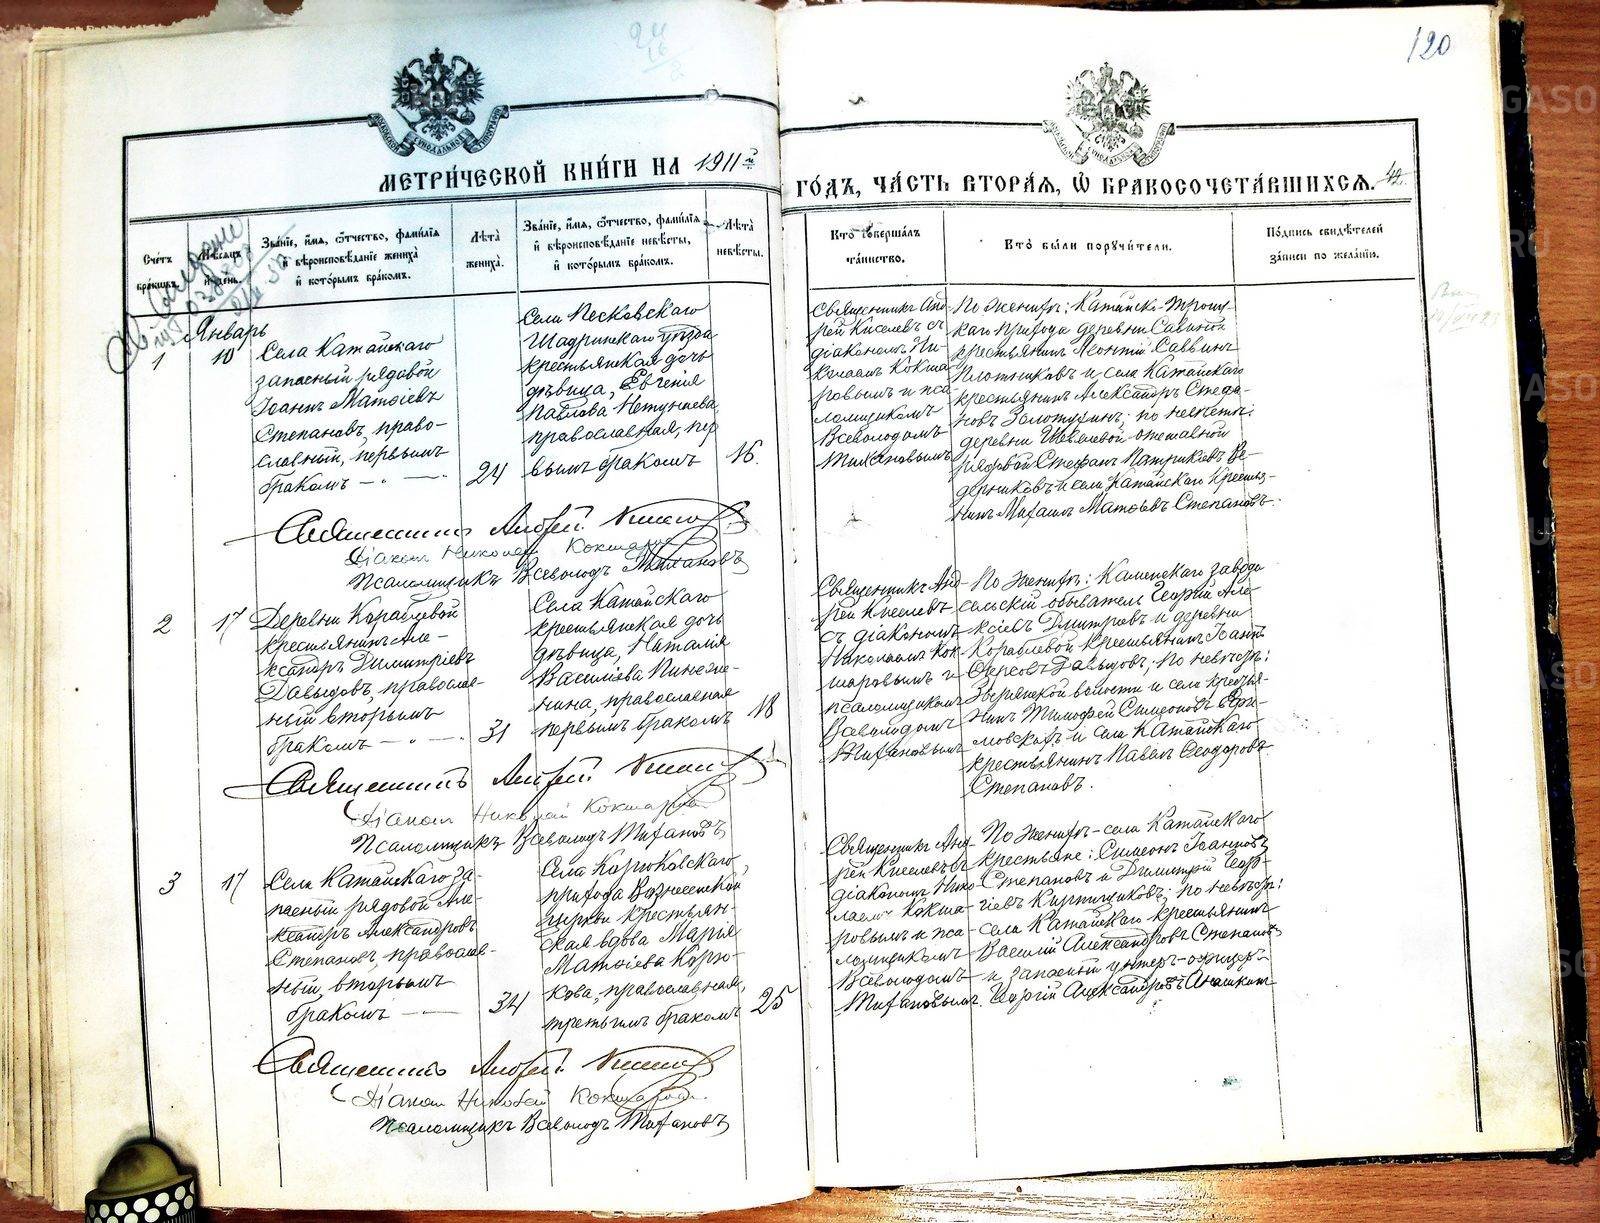 120
МЕТРИЧЕСКОЙ КНИГИ НА 1911й
ГОДЪ, ЧАСТЬ ВТОРАЯ, Ѡ БРАКОСОЧЕТАВШИХСЯ.
Счетъ браковъ.
Мѣсяцъ и день.
Званіе, имя, отчество, фамилія
и вѣроисповѣданіе жениха
и которымъ бракомъ.
Лѣта
жениха.
Званіе, имя, отчество, фамилія
и вѣроисповѣданіе невѣсты,
и которымъ бракомъ.
Лѣта
невѣсты.
Кто совершалъ
таинство.
Кто были поручители.
Подпись свидѣтелей
записи по желанію.
Январь
1
10
Села Катайскаго
запасный рядовой
Іоаннъ Матѳіевъ
Степановъ, право-
славный, первымъ
бракомъ
24
Села Песковскаго
Шадринскаго уѣзда
крестьянская дочь
дѣвица, Евгенія
Павлова
православная, пер
вымъ бракомъ
16.
Священникъ Анд-
рей Киселевъ съ
діакономъ Ни-
колаемъ Кокша-
ровымъ и пса
ломщикомъ
Всеволодомъ
Тихановымъ
По женихѣ: Катайско-Троиц-
каго прихода деревни
крестьянинъ Леонтій Саввинъ
Плотниковъ и села Катайскаго
крестьянинъ Александръ Стефа-
новъ Золотухинъ; по невѣстѣ:
деревни Шевелевой отставной
рядовой Стефанъ Патрикіевъ Ве-
дерниковъ и села Катайскаго крестья-
нинъ Михаилъ Матѳіевъ Степановъ.
Священникъ Андрей Киселевъ
Діаконъ Николай Кокшаровъ
Псаломщикъ Всеволодъ Тихановъ
2
17
Деревни Кораблевой
крестьянинъ Але-
ксандръ Димитріевъ
Давыдовъ, православ-
ный вторымъ
бракомъ
31
Села Катайскаго
крестьянская дочь
дѣвица, Наталія
Василіева Пинеже-
нина, православная
первымъ бракомъ
18
Священникъ Анд-
рей Киселевъ
съ діакономъ
Николаемъ Кок-
шаровымъ и
псаломщикомъ
Всеволодомъ
Тихановымъ
По женихѣ: Каменскаго завода
сельскій обыватель Георгій Але-
ксіевъ Дмитріевъ и деревни
Кораблевой крестьянинъ Іоаннъ
Давыдовъ; по невѣстѣ:
волости и села крестья-
нинъ Тимофей Симеоновъ
и села Катайскаго
крестьянинъ Павелъ Ѳеодоровъ
Степановъ.
Священникъ Андрей Киселевъ
Діаконъ Николай Кокшаровъ
Псаломщикъ Всеволодъ Тихановъ
3
17
Села Катайскаго за-
пасный рядовой Але-
ксандръ Александровъ
Степановъ, православ-
ный, вторымъ
бракомъ
34
Села Корюковскаго,
прихода Вознесенской
церкви крестьян-
ская вдова Марія
Матѳіева Корю-
кова, православная,
третьимъ бракомъ
25
Священникъ Анд-
рей Киселевъ съ
діакономъ Нико-
лаемъ Кокша-
ровымъ и пса-
ломщикомъ
Всеволодомъ
Тихановымъ.
По женихѣ - села Катайскаго
крестьяне: Симеонъ Іоанновъ
Степановъ и Димитрій Геор-
гіевъ Кирпищиковъ; по невѣстѣ:
села Катайскаго крестьянинъ
Василій Александровъ Степановъ
и запасный унтеръ-офицеръ
Георгій Александровъ
Священникъ Андрей Киселевъ
Діаконъ Николай Кокшаровъ
Псаломщикъ Всеволодъ Тихановъ